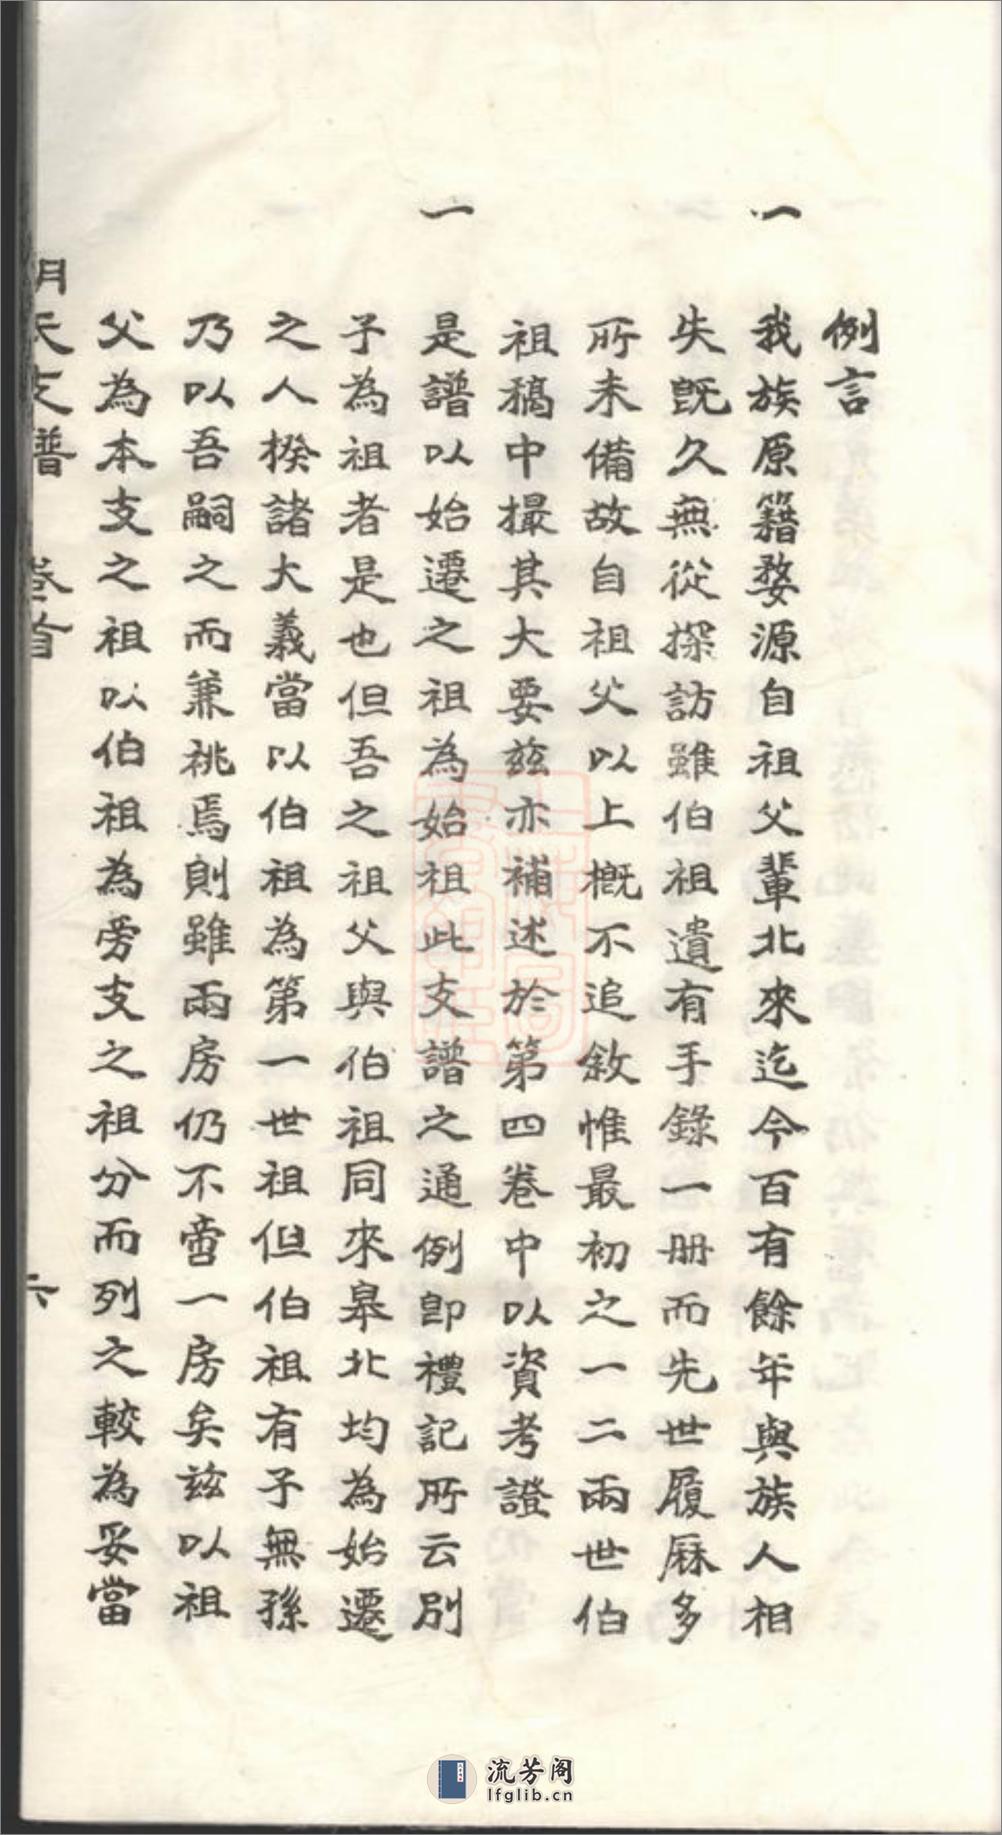 例言
一 我族原籍婺源自祖父輩北來迄今百有餘年與族人相
失旣久無從探訪雖伯祖遺有手錄一册而先世履厤多
所未備故自祖父以上槪不追敘惟最初之一二兩世伯
祖稿中撮其大要兹亦補述於第四卷中以資考證
一 是譜以始遷之祖為始祖此支譜之通例卽禮記所云別
子為祖者是也但吾之祖父與伯祖同來皋北均為始遷
之人揆諸大義當以伯祖為第一世祖但伯祖有子無孫
乃以吾嗣之而兼祧焉則雖兩房仍不啻一房矣兹以祖
父為本支之祖以伯祖為旁支之祖分而列之較為妥當
支譜 卷首 六
流芳阁
lfglib.cn